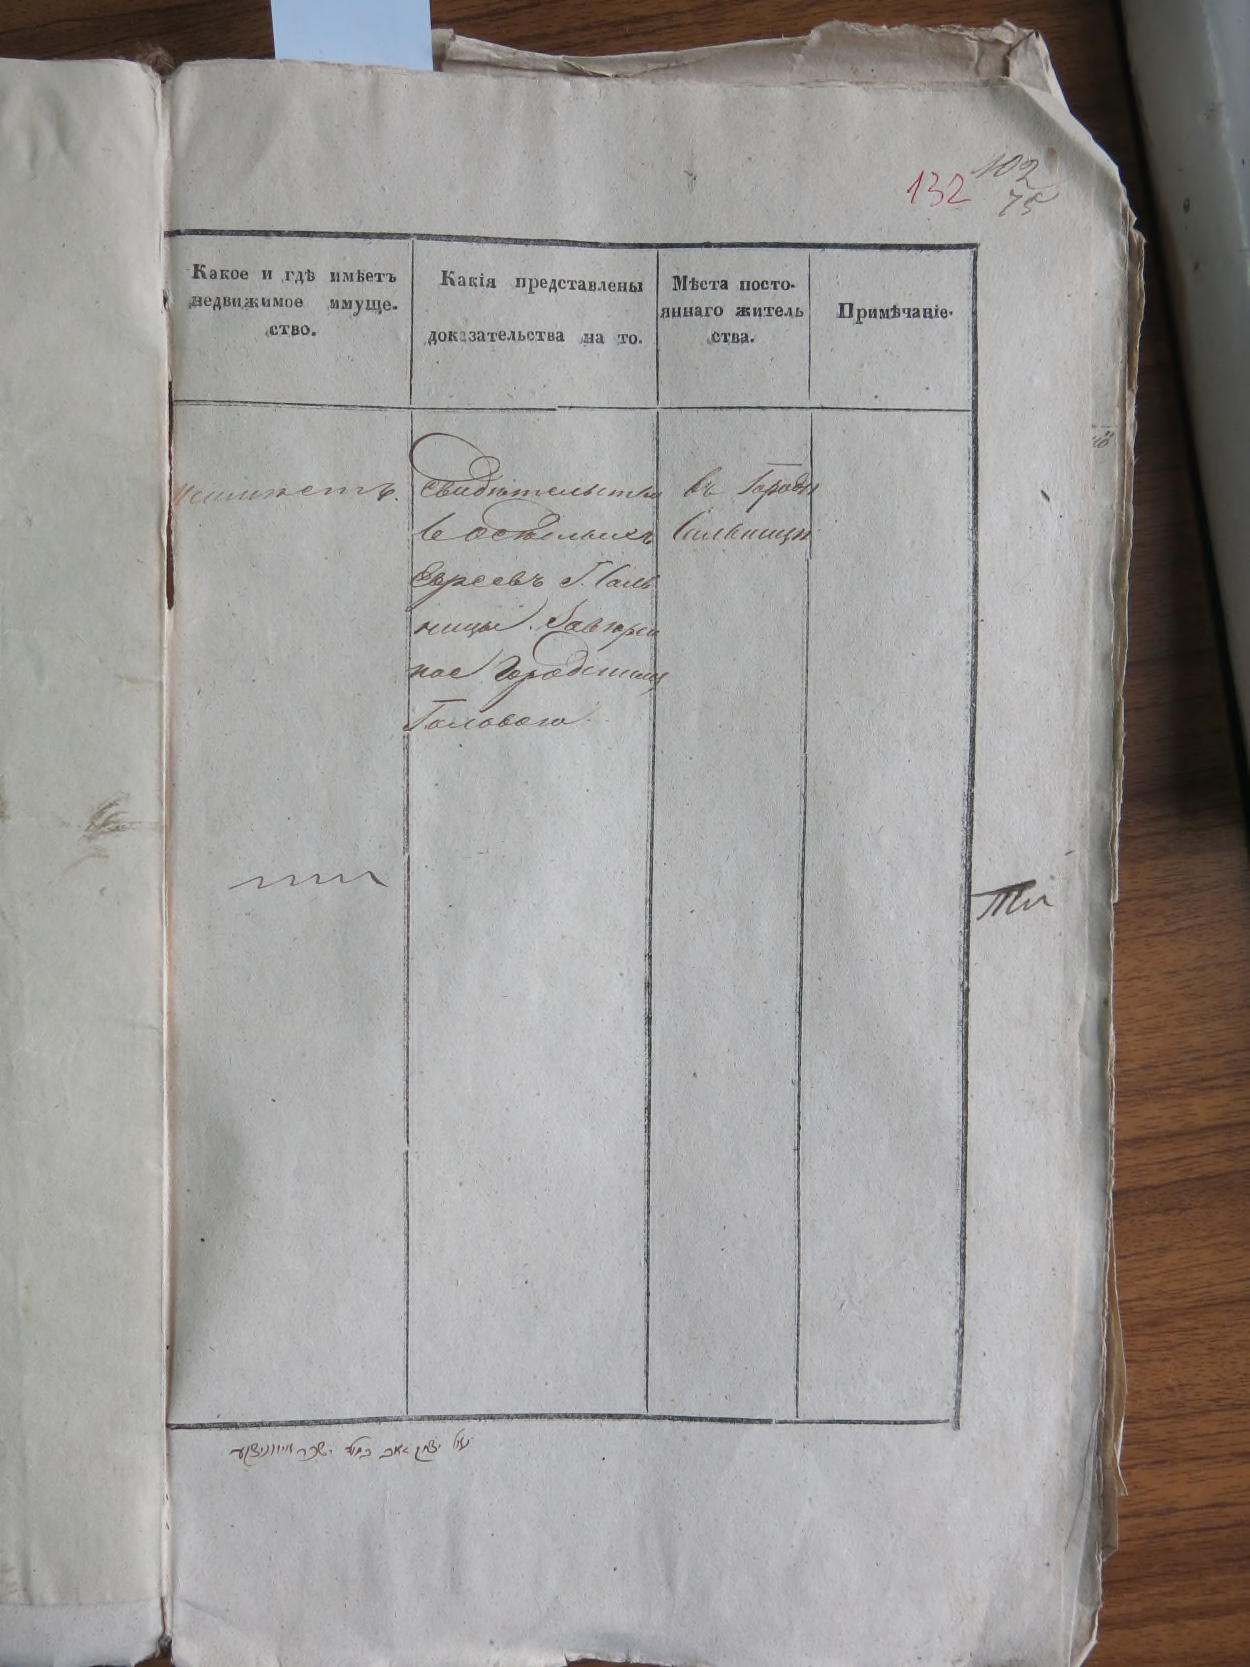 132 102
75
Какое и гдѣ имѣетъ
недвижимое имуще-
ство.
Какія представлены
доказательства на то.
Мѣста посто-
яннаго житель
ства.
Примѣчаніе.
неимѣетъ.
свидѣтельства
6 осѣдлыхъ
Евреевъ Г. Саль
ницы. Завѣрен
ное Городскимъ
Головою.
въ Городѣ
Сальницѣ